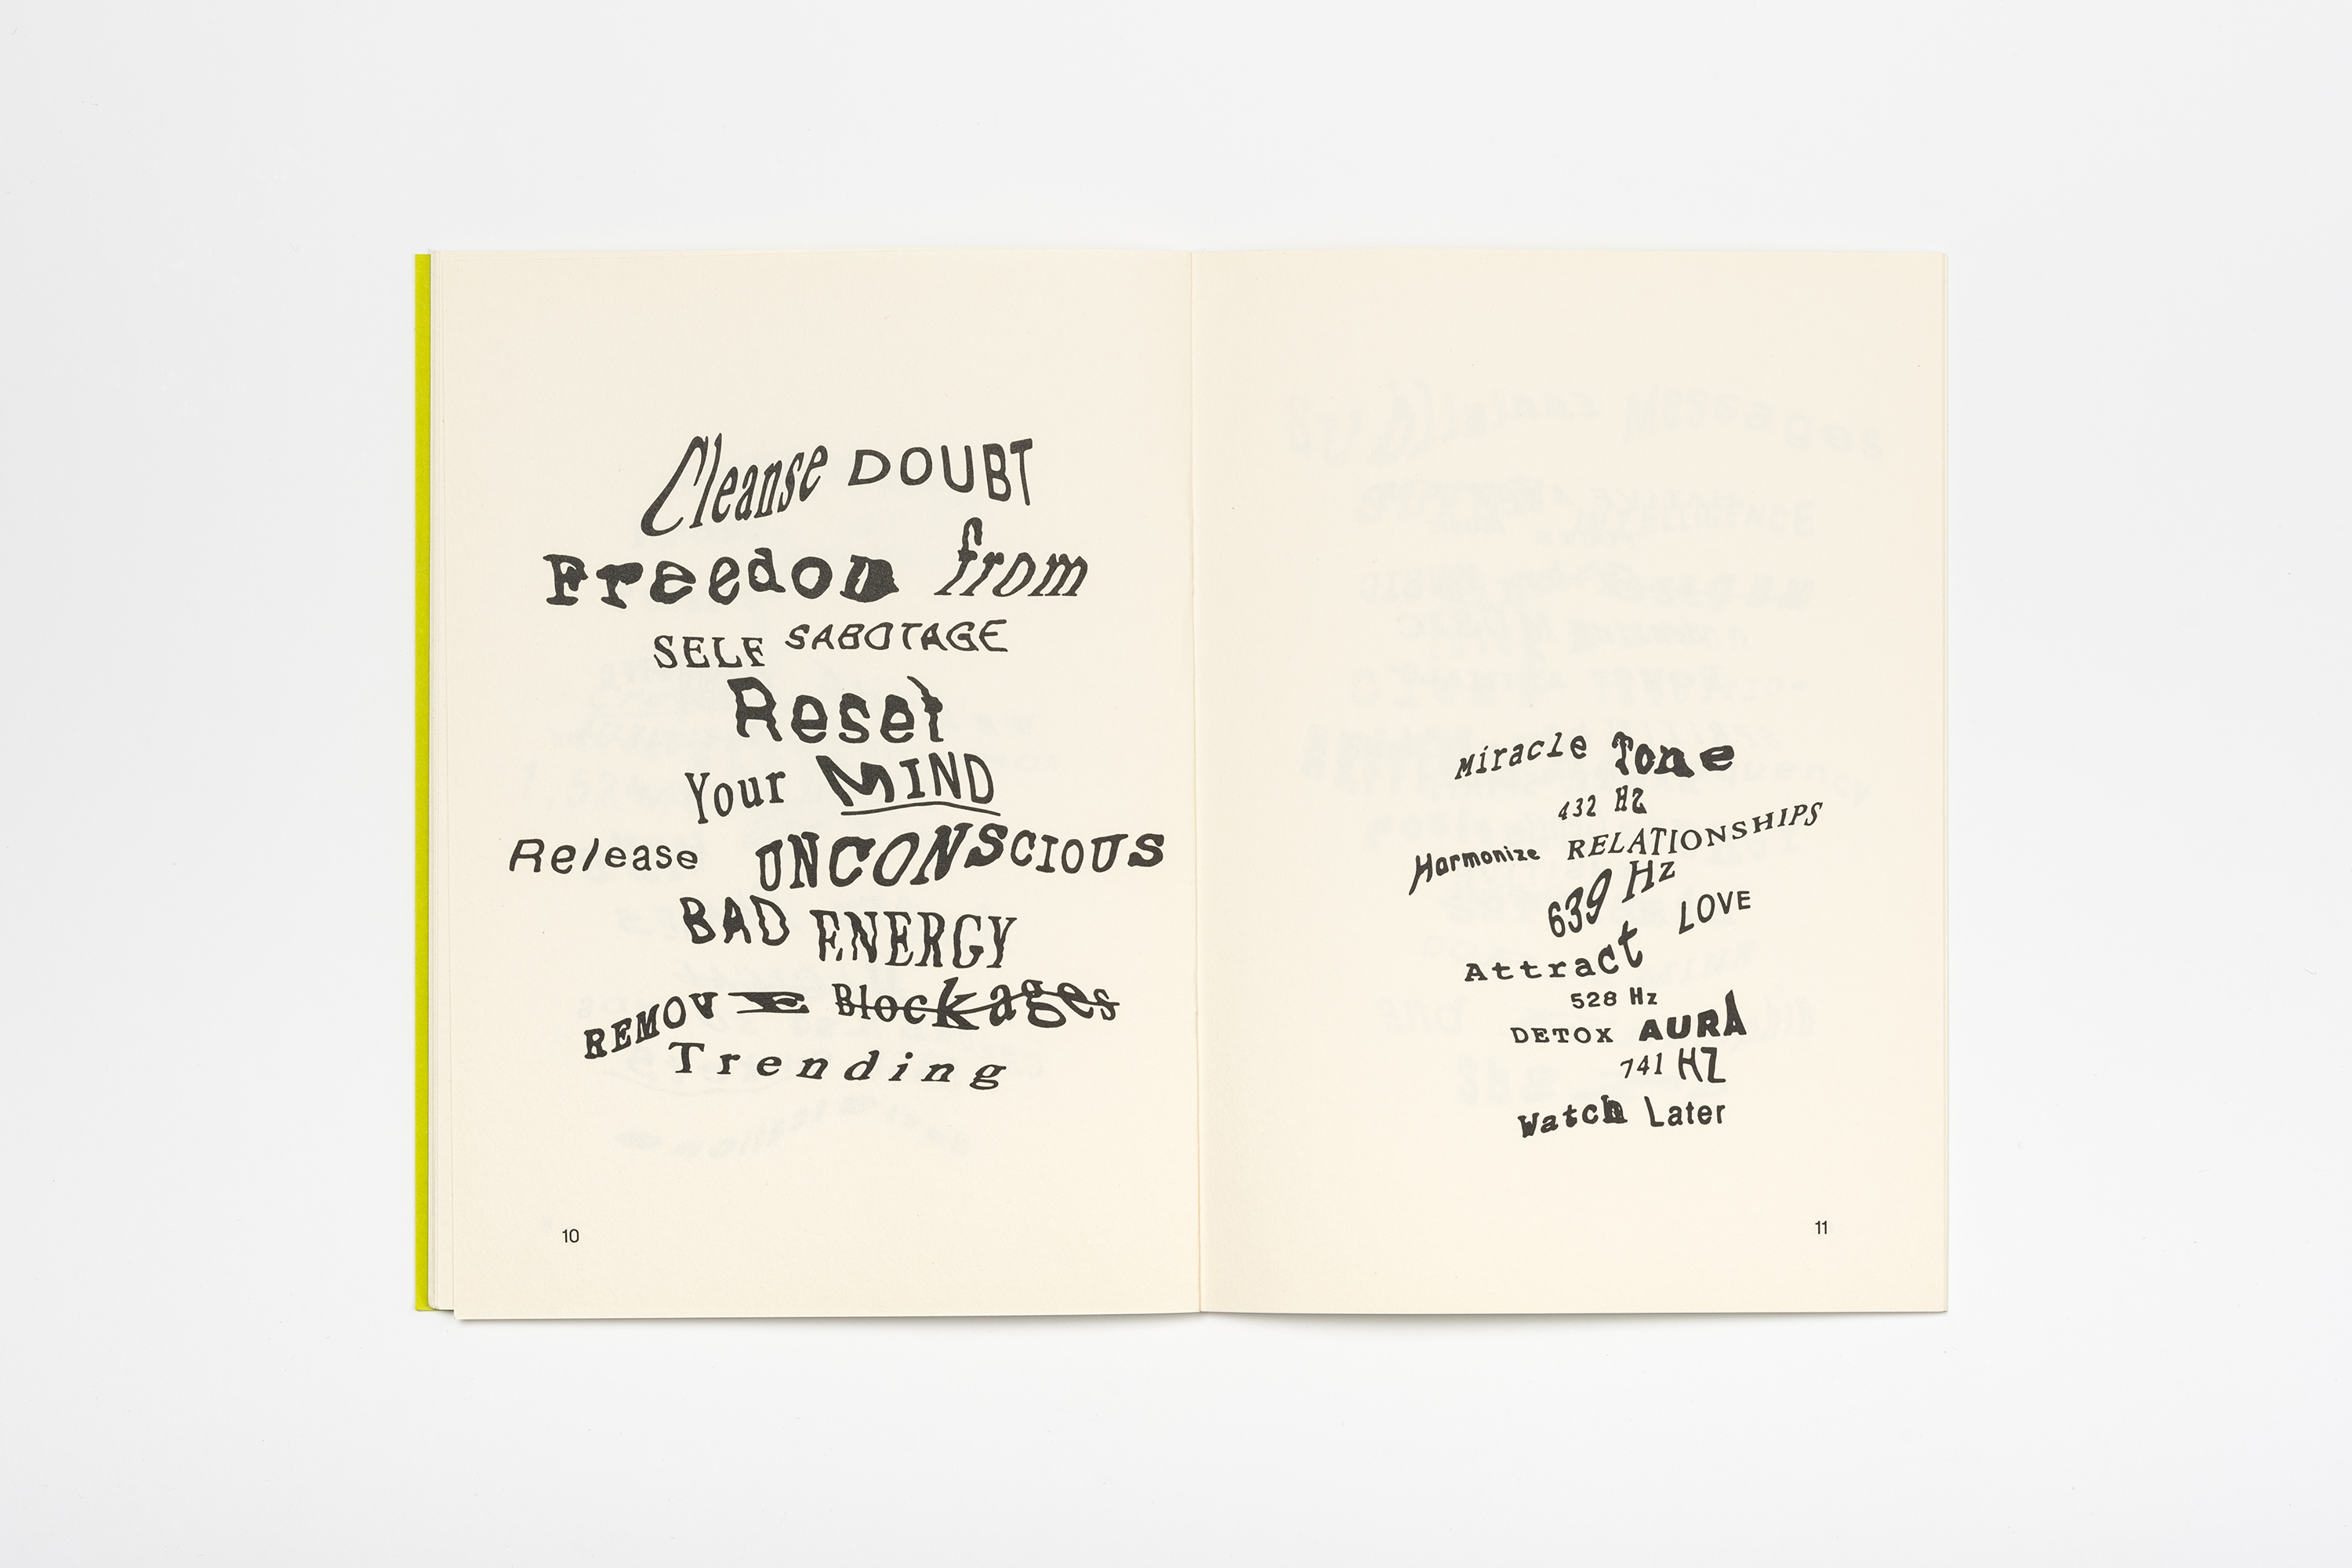 Cleanse DOUBT
Freedom from
SELF SABOTAGE
Reset
Your MIND
Release UNCONSCIOUS
BAD ENERGY
REMOVE Blockages
Trending
10
Miracle Tone
432 Hz
Harmonize RELATIONSHIPS
639 Hz
Attract LOVE
528 Hz
DETOX AURA
741 HZ
Watch Later
11